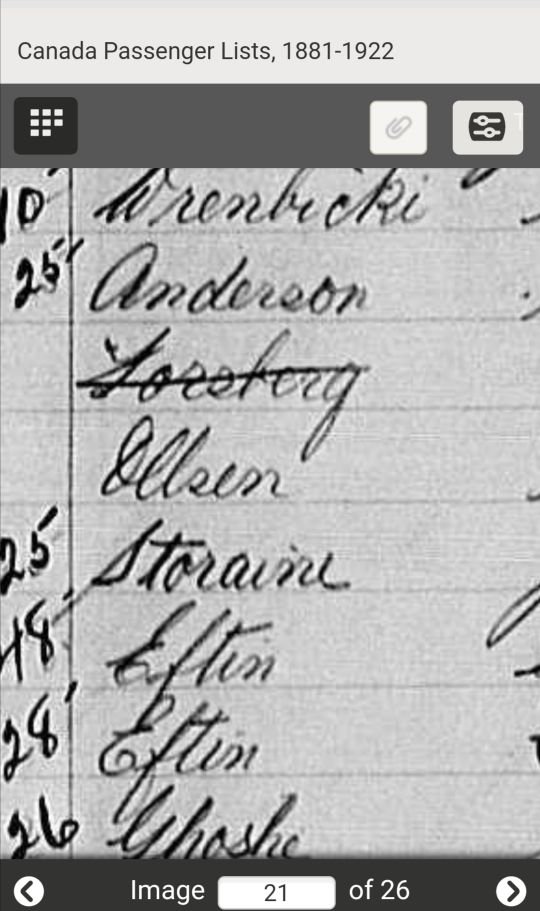 Canada Passenger Lists, 1881-1922
10 Wrenbicki
25 Anderson
Forsberg
Ollsen
25 Storaine
48 Eftin
28 Eftin
26 Ghoshe
Image 21 of 26